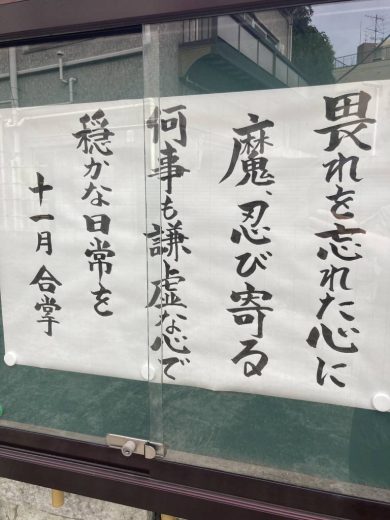 畏れを忘れた心に
魔、忍び寄る
何事も謙虚な心で
穏かな日常を
十一月 合掌